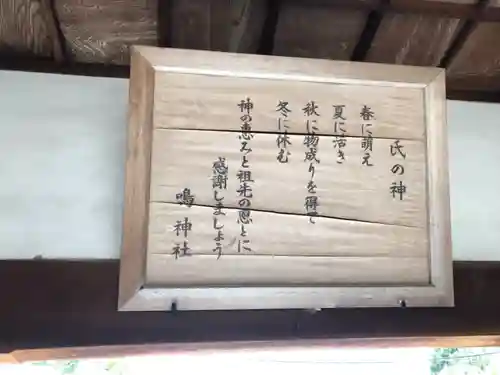 氏の神
春に萌え
夏に活き
秋に物成りを得て
冬に休む
神の恵みと祖先の恩とに
感謝しましょう
鳴神社